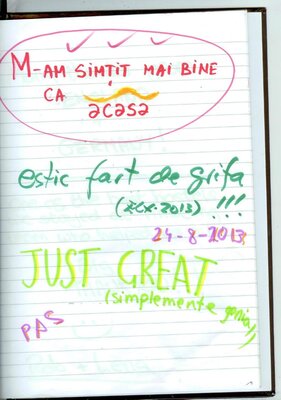 M-AM SIMȚIT MAI BINE
CA
acasa
estic fart de grifa
!!!
24-8-2013
JUST GREAT
(simplemente genial)
PAS